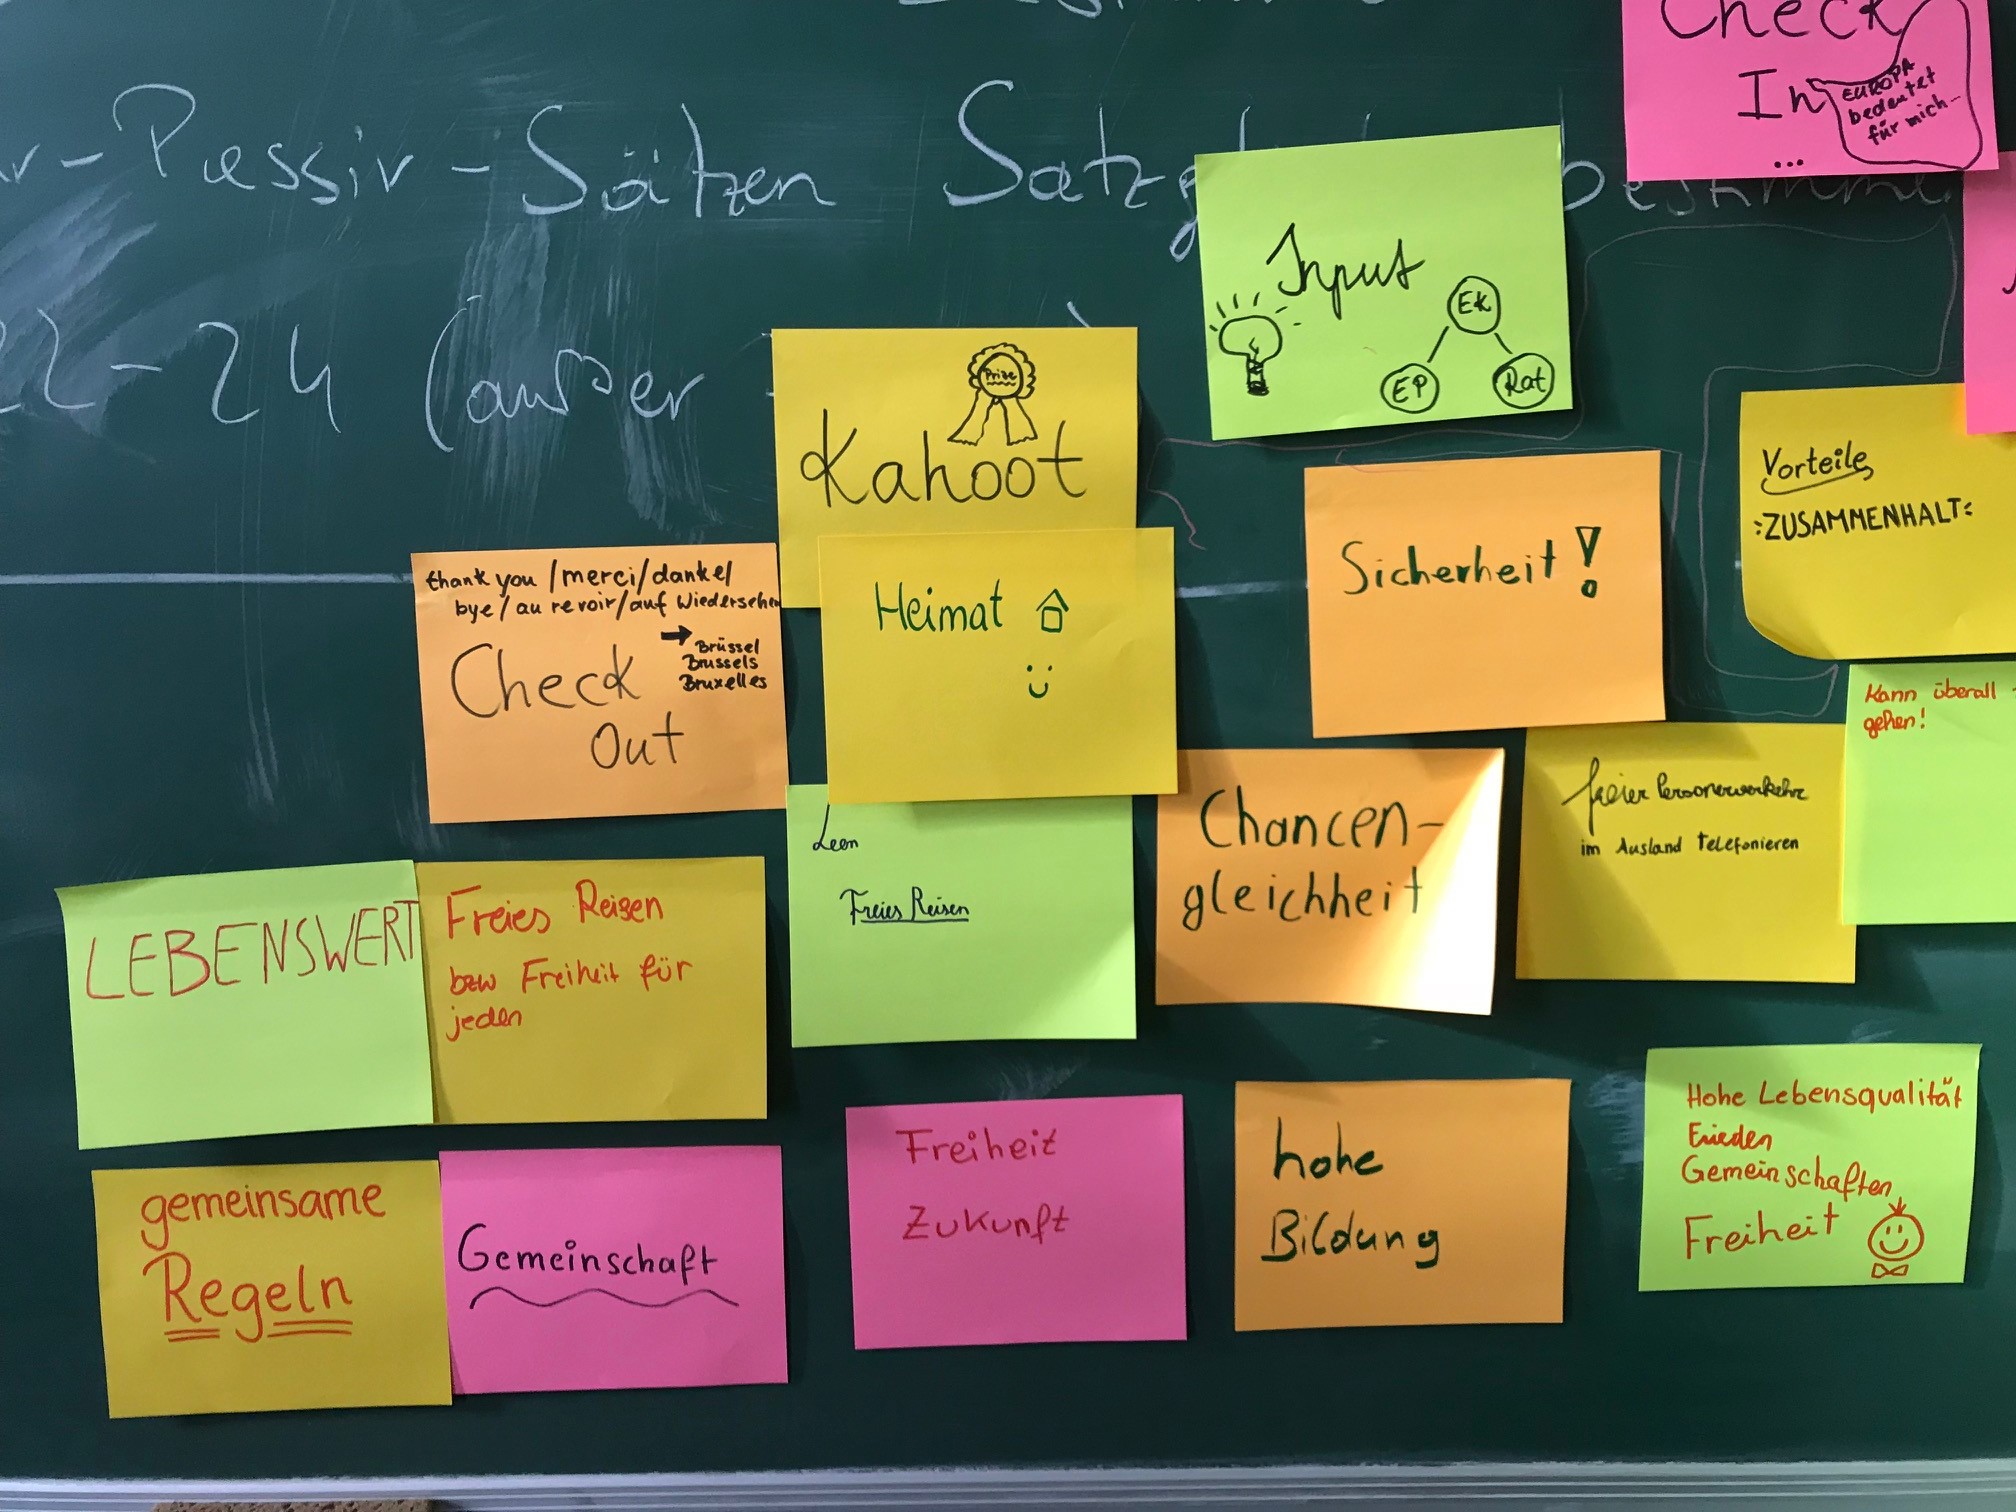 Check
In
EUROPA
bedeutet
für mich...
...
Passiv-Sätzen
Input
EK
EP
Rat
22-24 (außer
Prize
Kahoot
Vorteile
ZUSAMMENHALT
Sicherheit!
thank you/merci/danke/
bye/au revoir/auf Wiedersehen
→ Brüssel
Brussels
Bruxelles
Check
Out
Heimat
Kann überall
gehen!
freier Personenverkehr
im Ausland telefonieren
Chancen-
gleichheit
Leon
Freies Reisen
LEBENSWERT
Freies Reisen
bzw Freiheit für
jeden
Hohe Lebensqualität
Frieden
Gemeinschaften
Freiheit
Freiheit
Zukunft
hohe
Bildung
gemeinsame
Regeln
Gemeinschaft